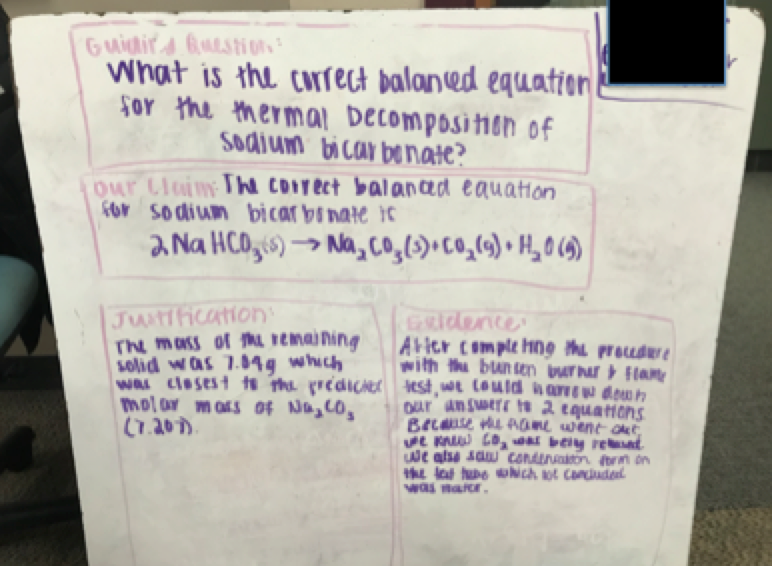 Guiding Question:
What is the correct balanced equation
for the thermal Decomposition of
sodium bicarbonate?
Our Claim: The correct balanced equation
for sodium bicarbonate is
2NaHCO₃(s) → Na₂CO₃(s) + CO₂(g) + H₂O(g)
Justification:
The mass of the remaining
solid was 7.04g which
was closest to the predicted
molar mass of Na₂CO₃
Evidence:
After completing the procedure
with the bunsen burner & flame
test, we could narrow down
our answers to 2 equations.
Because the flame went out,
we knew CO₂ was being released
We also saw condensation form on
the test tube which concluded
was water.